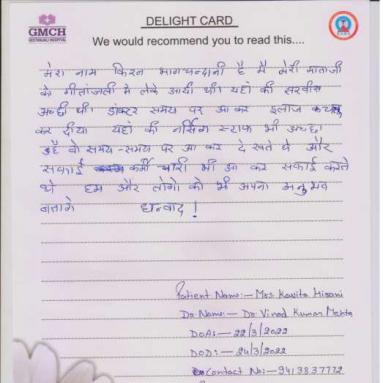 GMCH
GEETANJALI HOSPITAL
DELIGHT CARD
We would recommend you to read this....
मेरा नाम किरन भागचन्दानी है मै मेरी माताजी
के गीतांजली मे लेके आयी थी। यहाँ की सरवीस
अच्छी थी। डॉक्टर समय पर आ कर इलाज
कर दीया यहाँ की नर्सिग स्टाफ भी अच्छा
है वो समय-समय पर आ कर देखते थे और
सफाई कर्मी चारी भी आ कर सफाई करते
थे हम और लोगो को भी अपना अनुभव
बतागे धन्वाद !
Patient Name:- Mrs Kavita Hirani
Dr Name:- Dr Vinod Kumar Mehta
DOA:- 22/3/2022
DOD:- 24/3/2022
Contact No:- 9413837772